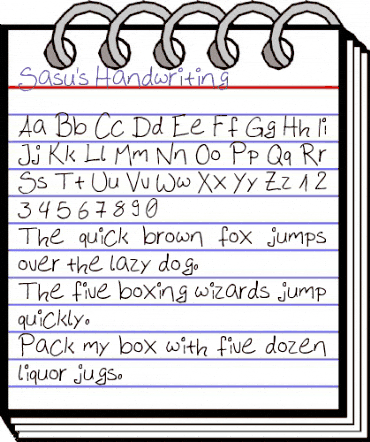 Sasu's Handwriting
Aa Bb Cc Dd Ee Ff Gg Hh Ii
Jj Kk Ll Mm Nn Oo Pp Qq Rr
Ss Tt Uu Vv Ww Xx Yy Zz 1 2
3 4 5 6 7 8 9 0
The quick brown fox jumps
over the lazy dog.
The five boxing wizards jump
quickly.
Pack my box with five dozen
liquor jugs.